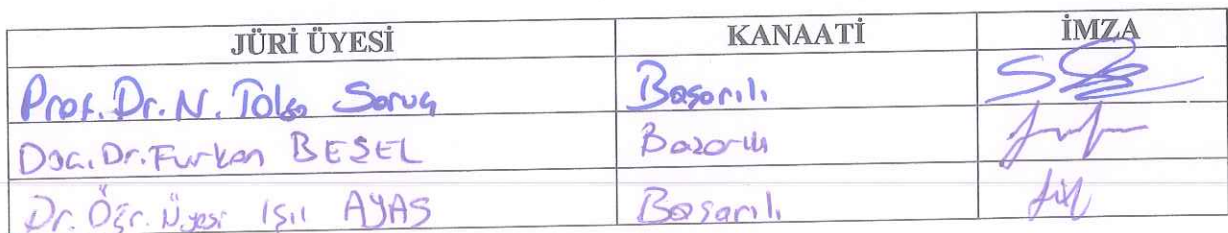 JÜRİ ÜYESİ KANAATİ İMZA
Prof. Dr. N. Tolga Saruç Başarılı
Doç. Dr. Furkan BEŞEL Başarılı
Dr. Öğr. Üyesi Işıl AYAS Başarılı